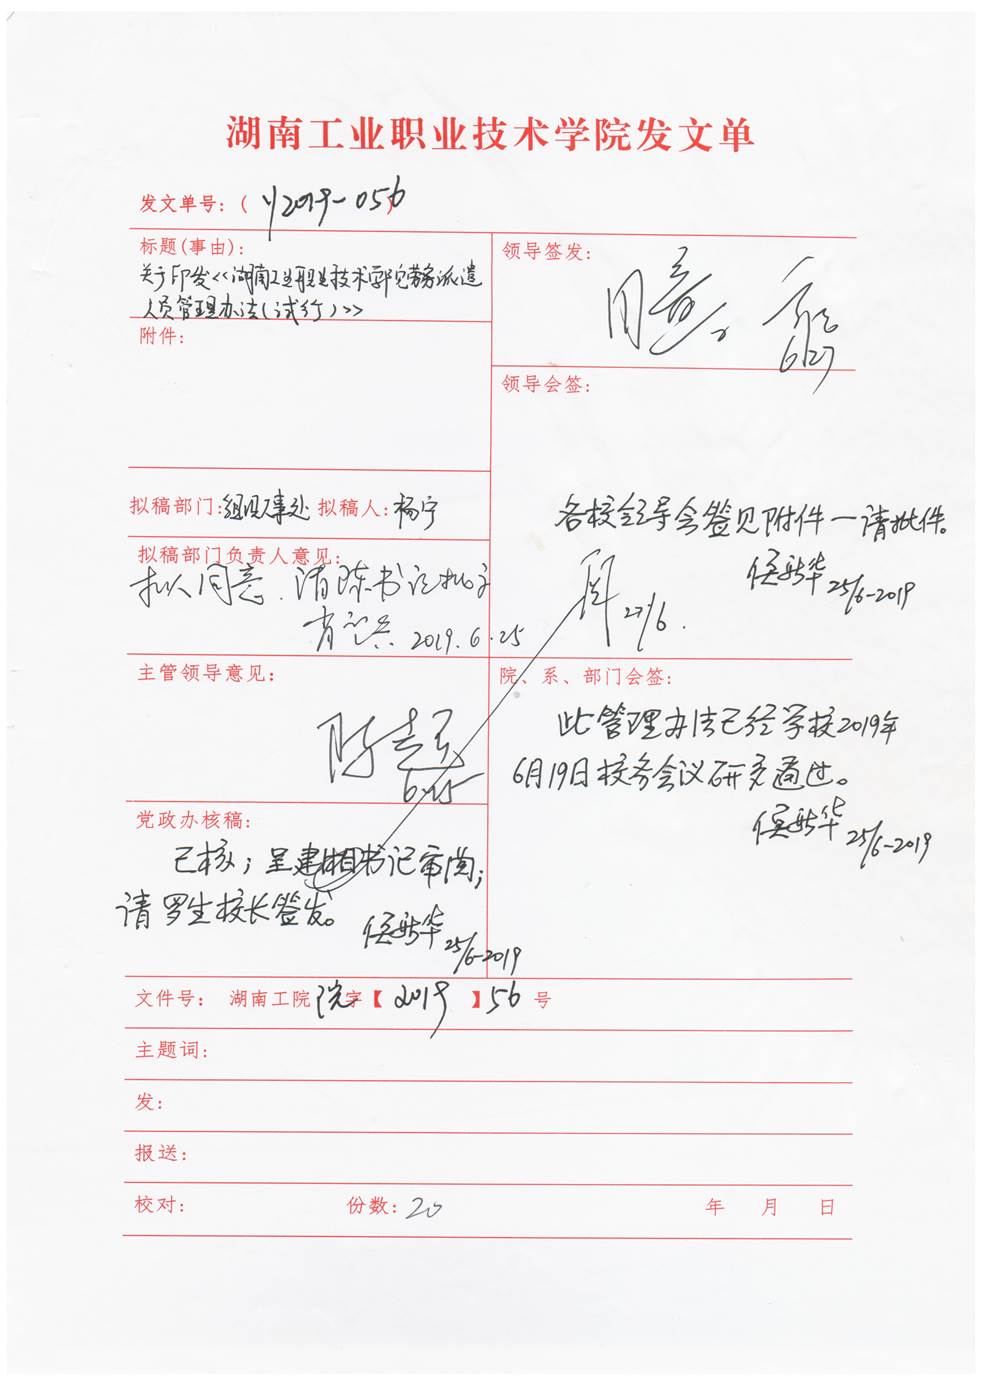 湖南工业职业技术学院发文单
发文单号:( y2019-056
标题(事由):
关于印发<<湖南工业职业技术学院劳务派遣
人员管理办法(试行)>>
附件:
拟稿部门:组织人事处 拟稿人:杨宁
拟稿部门负责人意见:
拟同意.请陈书记批示
2019.6.25
主管领导意见:
6.25
党政办核稿:
已核;呈建湘书记审阅;
请罗生校长签发。
侯新华 25/6-2019
领导签发:
同意。
6.27
领导会签:
各校领导会签见附件一请批件。
侯新华 25/6-2019
周 27/6.
院、系、部门会签:
此管理办法已经学校2019年
6月19日校务会议研究通过。
侯新华 25/6-2019
文件号: 湖南工院院字【2019】56号
主题词:
发:
报送:
校对: 份数:20 年 月 日